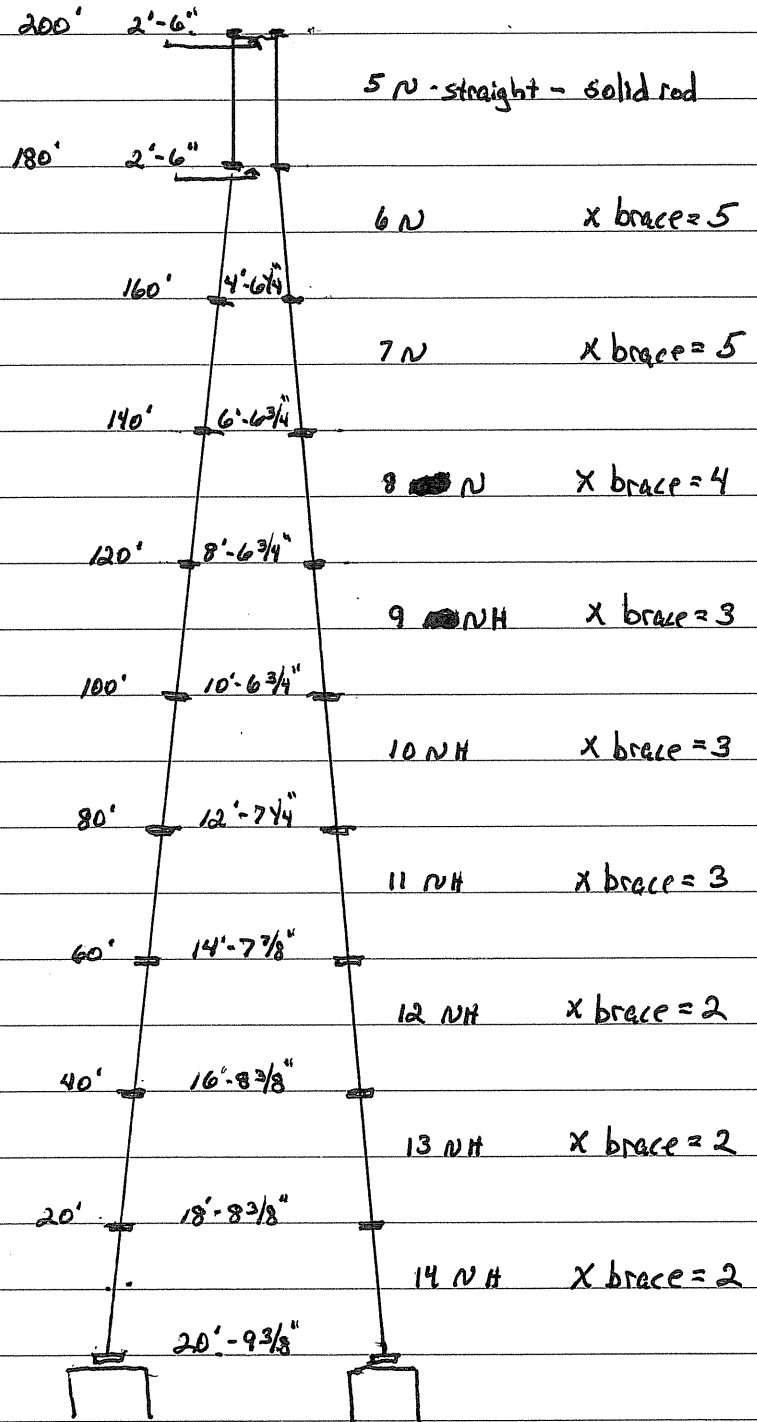 200' 2'-6"
5 N - straight - solid rod
180' 2'-6"
6 N x brace = 5
160' 4'-6 1/4"
7 N x brace = 5
140' 6'-6 3/4"
8 N x brace = 4
120' 8'-6 3/4"
9 NH x brace = 3
100' 10'-6 3/4"
10 NH x brace = 3
80' 12'-7 1/4"
11 NH x brace = 3
60' 14'-7 7/8"
12 NH x brace = 2
40' 16'-8 3/8"
13 NH x brace = 2
20' 18'-8 3/8"
14 NH x brace = 2
20'-9 3/8"